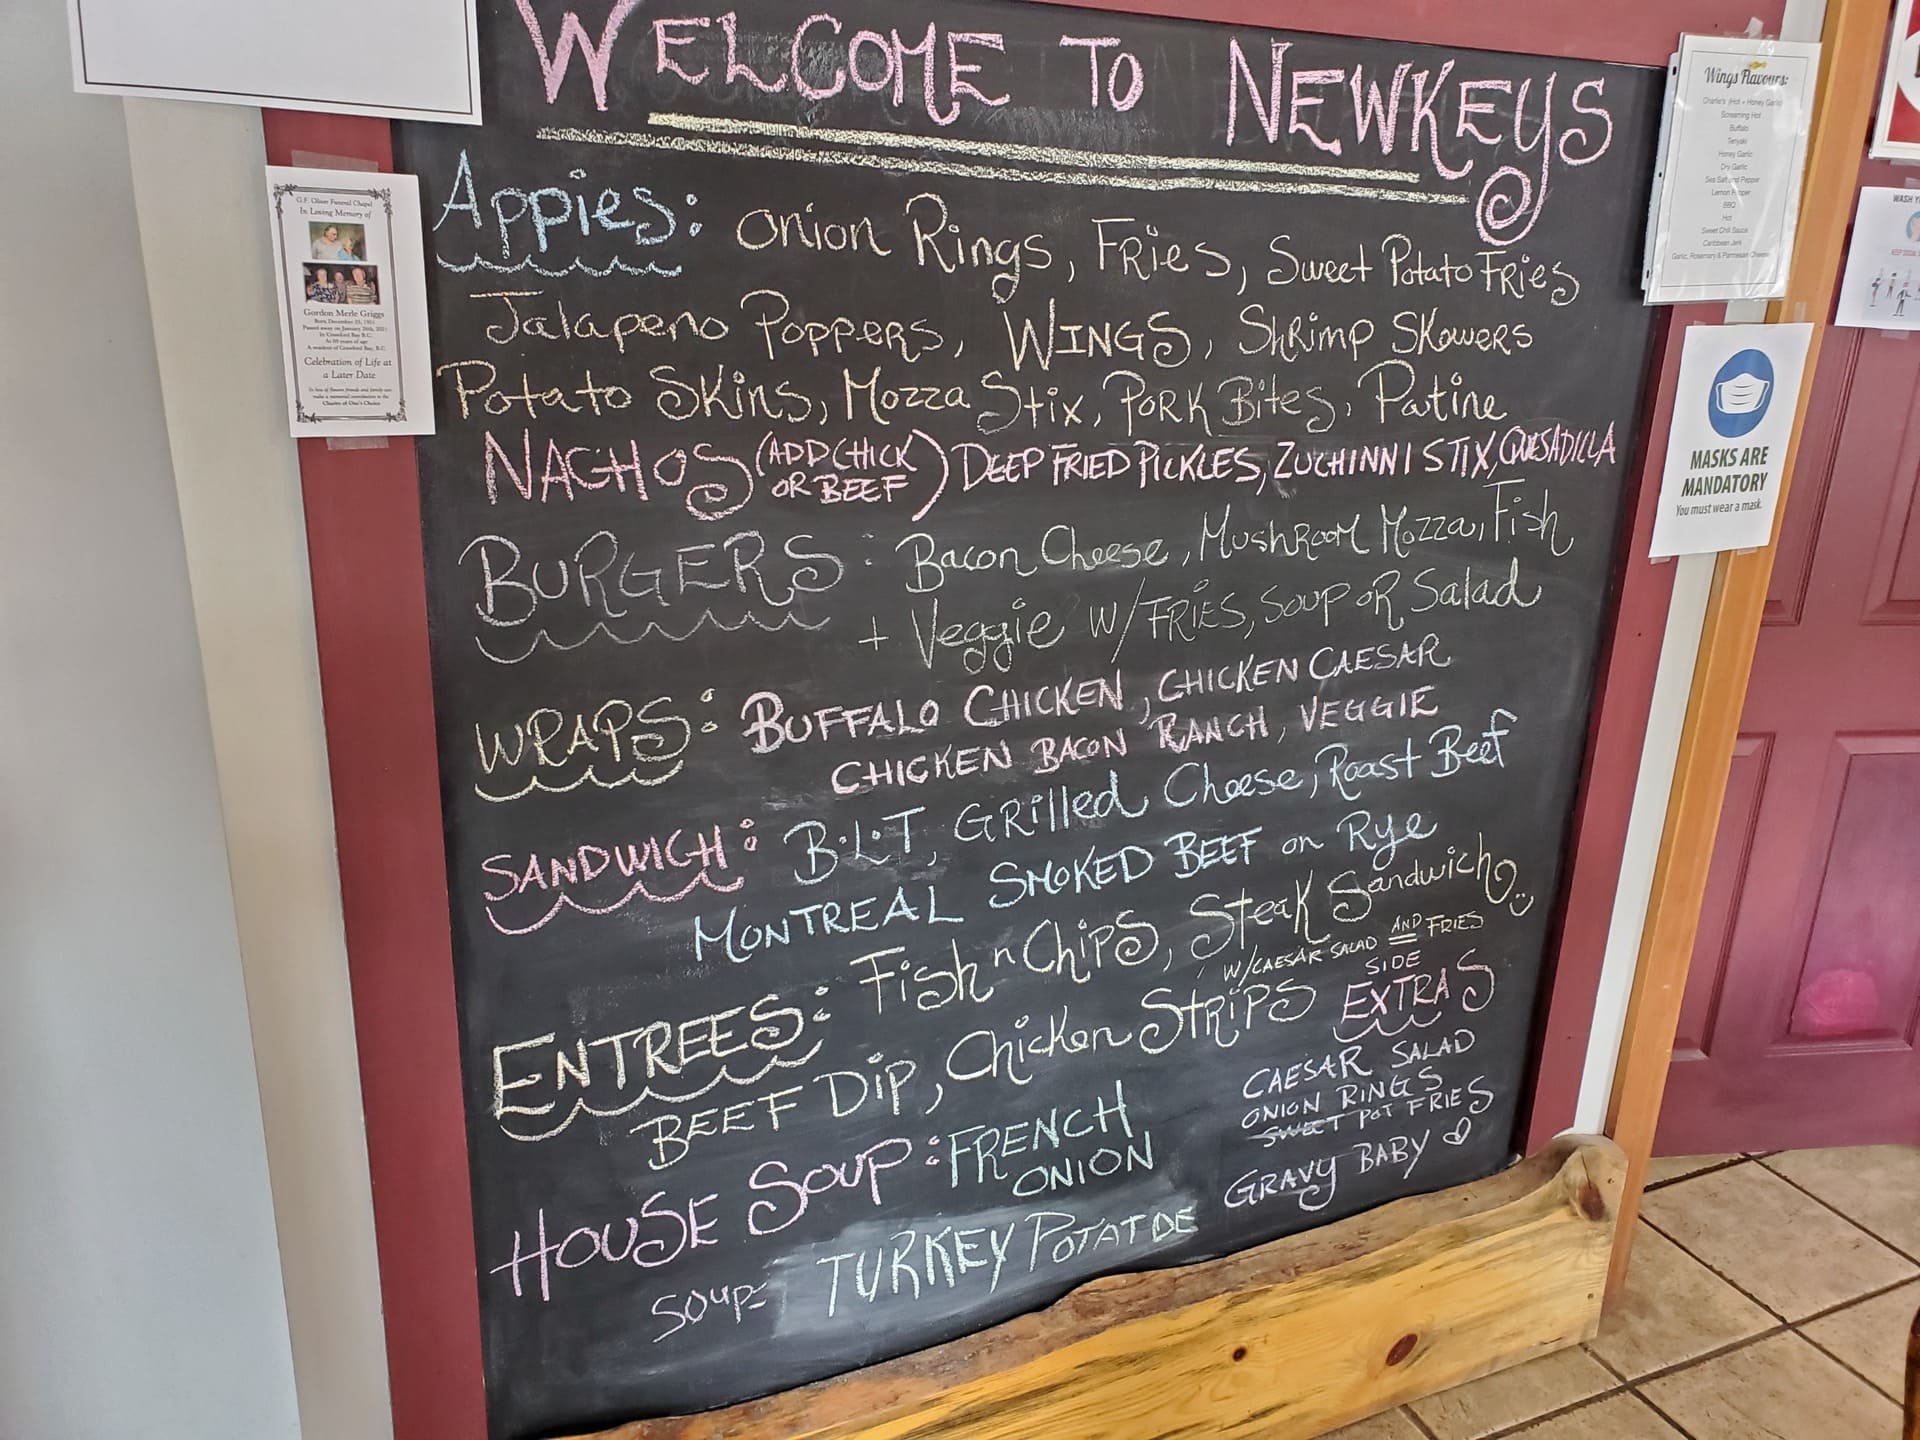 WELCOME TO NEWKEYS
APPies: Onion Rings, Fries, Sweet Potato Fries
Jalapeno Poppers, WINGS, Shrimp Skewers
Potato Skins, Mozza Stix, Pork Bites, Putine
NACHOS (ADD CHICK OR BEEF) DEEP FRIED PICKLES, ZUCHINNI STIX, QUESADILLA
BURGERS: Bacon Cheese, Mushroom Mozza, Fish
+ Veggie W/ FRIES, SOUP OR Salad
WRAPS: BUFFALO CHICKEN, CHICKEN CAESAR
CHICKEN BACON RANCH, VEGGIE
SANDWICH: B.L.T, Grilled Cheese, Roast Beef
MONTREAL SMOKED BEEF on Rye
ENTREES: Fish n Chips, Steak Sandwich
W/CAESAR SALAD AND FRIES
BEEF DIP, Chicken Strips
SIDE
EXTRAS
CAESAR SALAD
ONION RINGS
SWEET POT FRIES
GRAVY BABY
HOUSE SOUP: FRENCH
ONION
Soup= TURKEY POTATOE
G.F. Oliver Funeral Chapel
In Loving Memory of
Gordon Merle Griggs
Born December 25, 1931
Passed away on January 26th, 2021
In Crawford Bay B.C.
At 89 years of age
A resident of Crawford Bay, B.C.
Celebration of Life at
a Later Date
In lieu of flowers friends and family can
make a memorial contribution to the
Charity of One's Choice
Wings Flavours:
Charlie's (Hot + Honey Garlic)
Screaming Hot
Buffalo
Teriyaki
Honey Garlic
Dry Garlic
Sea Salt and Pepper
Lemon Pepper
BBQ
Hot
Sweet Chili Sauce
Caribbean Jerk
Garlic, Rosemary & Parmesan Cheese
MASKS ARE
MANDATORY
You must wear a mask.
WASH
KEEP